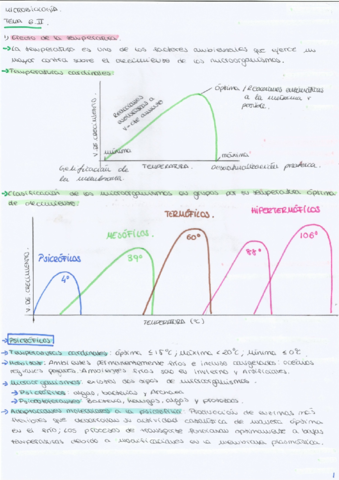 MICROBIOLOGÍA.
TEMA 6.II
Efecto de la temperatura
→ La temperatura es uno de los factores ambientales que ejerce un
mayor control sobre el crecimiento de los microorganismos.
→ Temperaturas cardinales
V DE CRECIMIENTO
Óptima / Reacciones enzimáticas
a la máxima v
posible.
Reacciones
enzimáticas a
mínimo
máximo
Gelificación de
la membrana.
TEMPERATURA
Desnaturalización proteica.
→ Clasificación de los microorganismos en grupos por su temperatura óptima
de crecimiento:
V DE CRECIMIENTO
PSICRÓFILOS
4º
MESÓFILOS
39º
TERMÓFILOS
60º
HIPERTERMÓFILOS
88º
106º
TEMPERATURA (ºC)
→ PSICRÓFILOS
→ Temperaturas cardinales: óptima ≤15ºC, máxima <20ºC, mínima ≤0ºC
→ Hábitats: Ambientes permanentemente fríos e incluso congelados: océanos
regiones polares. Ambientes fríos solo en invierno y artificiales.
→ Microorganismos: existen dos tipos de microorganismos.
→ Psicrófilos: algas, bacterias y Archaea
→ Psicrotolerantes: bacterias, hongos, algas y protozoos.
→ Adaptaciones moleculares a la psicrofilia: Producción de enzimas más
flexibles que desarrollan su actividad catalítica de manera óptima
en el frío, los procesos de transporte funcionan óptimamente a bajas
temperaturas debido a modificaciones en la membrana plasmática.
1